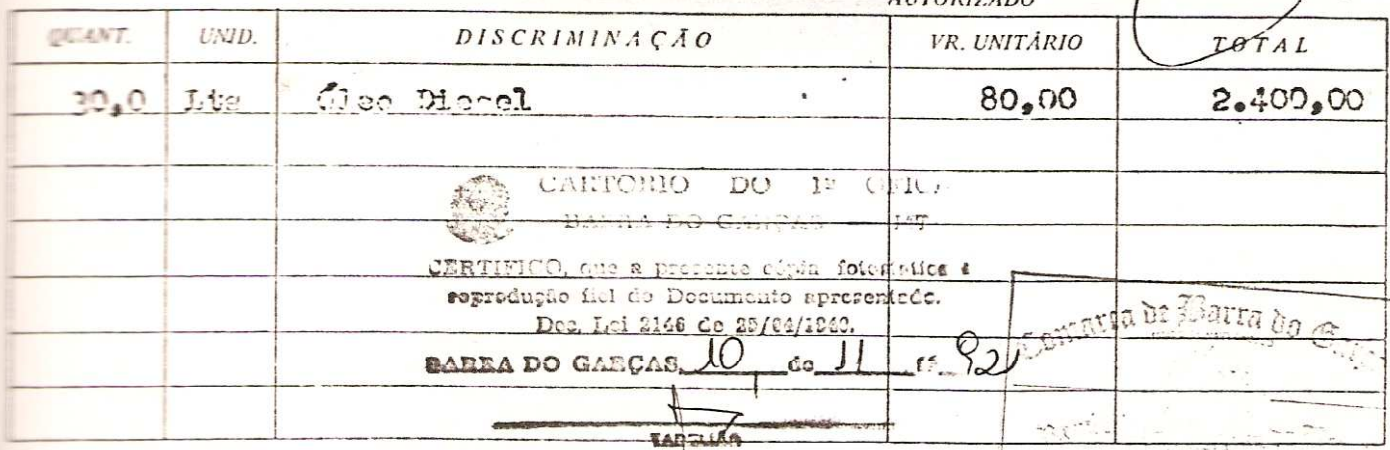 AUTORIZADO
QUANT. UNID. DISCRIMINAÇÃO VR. UNITÁRIO TOTAL
30,0 Lts Óleo Diesel 80,00 2.400,00
CARTORIO DO 1º
BARRA DO GARÇAS MT
CERTIFICO, que a presente cópia fotostática é
reprodução fiel do Documento apresentado.
Dec. Lei 2148 de 25/04/1940.
BARRA DO GARÇAS, 10 de 11 92
TABELIÃO
Comarca de Barra do